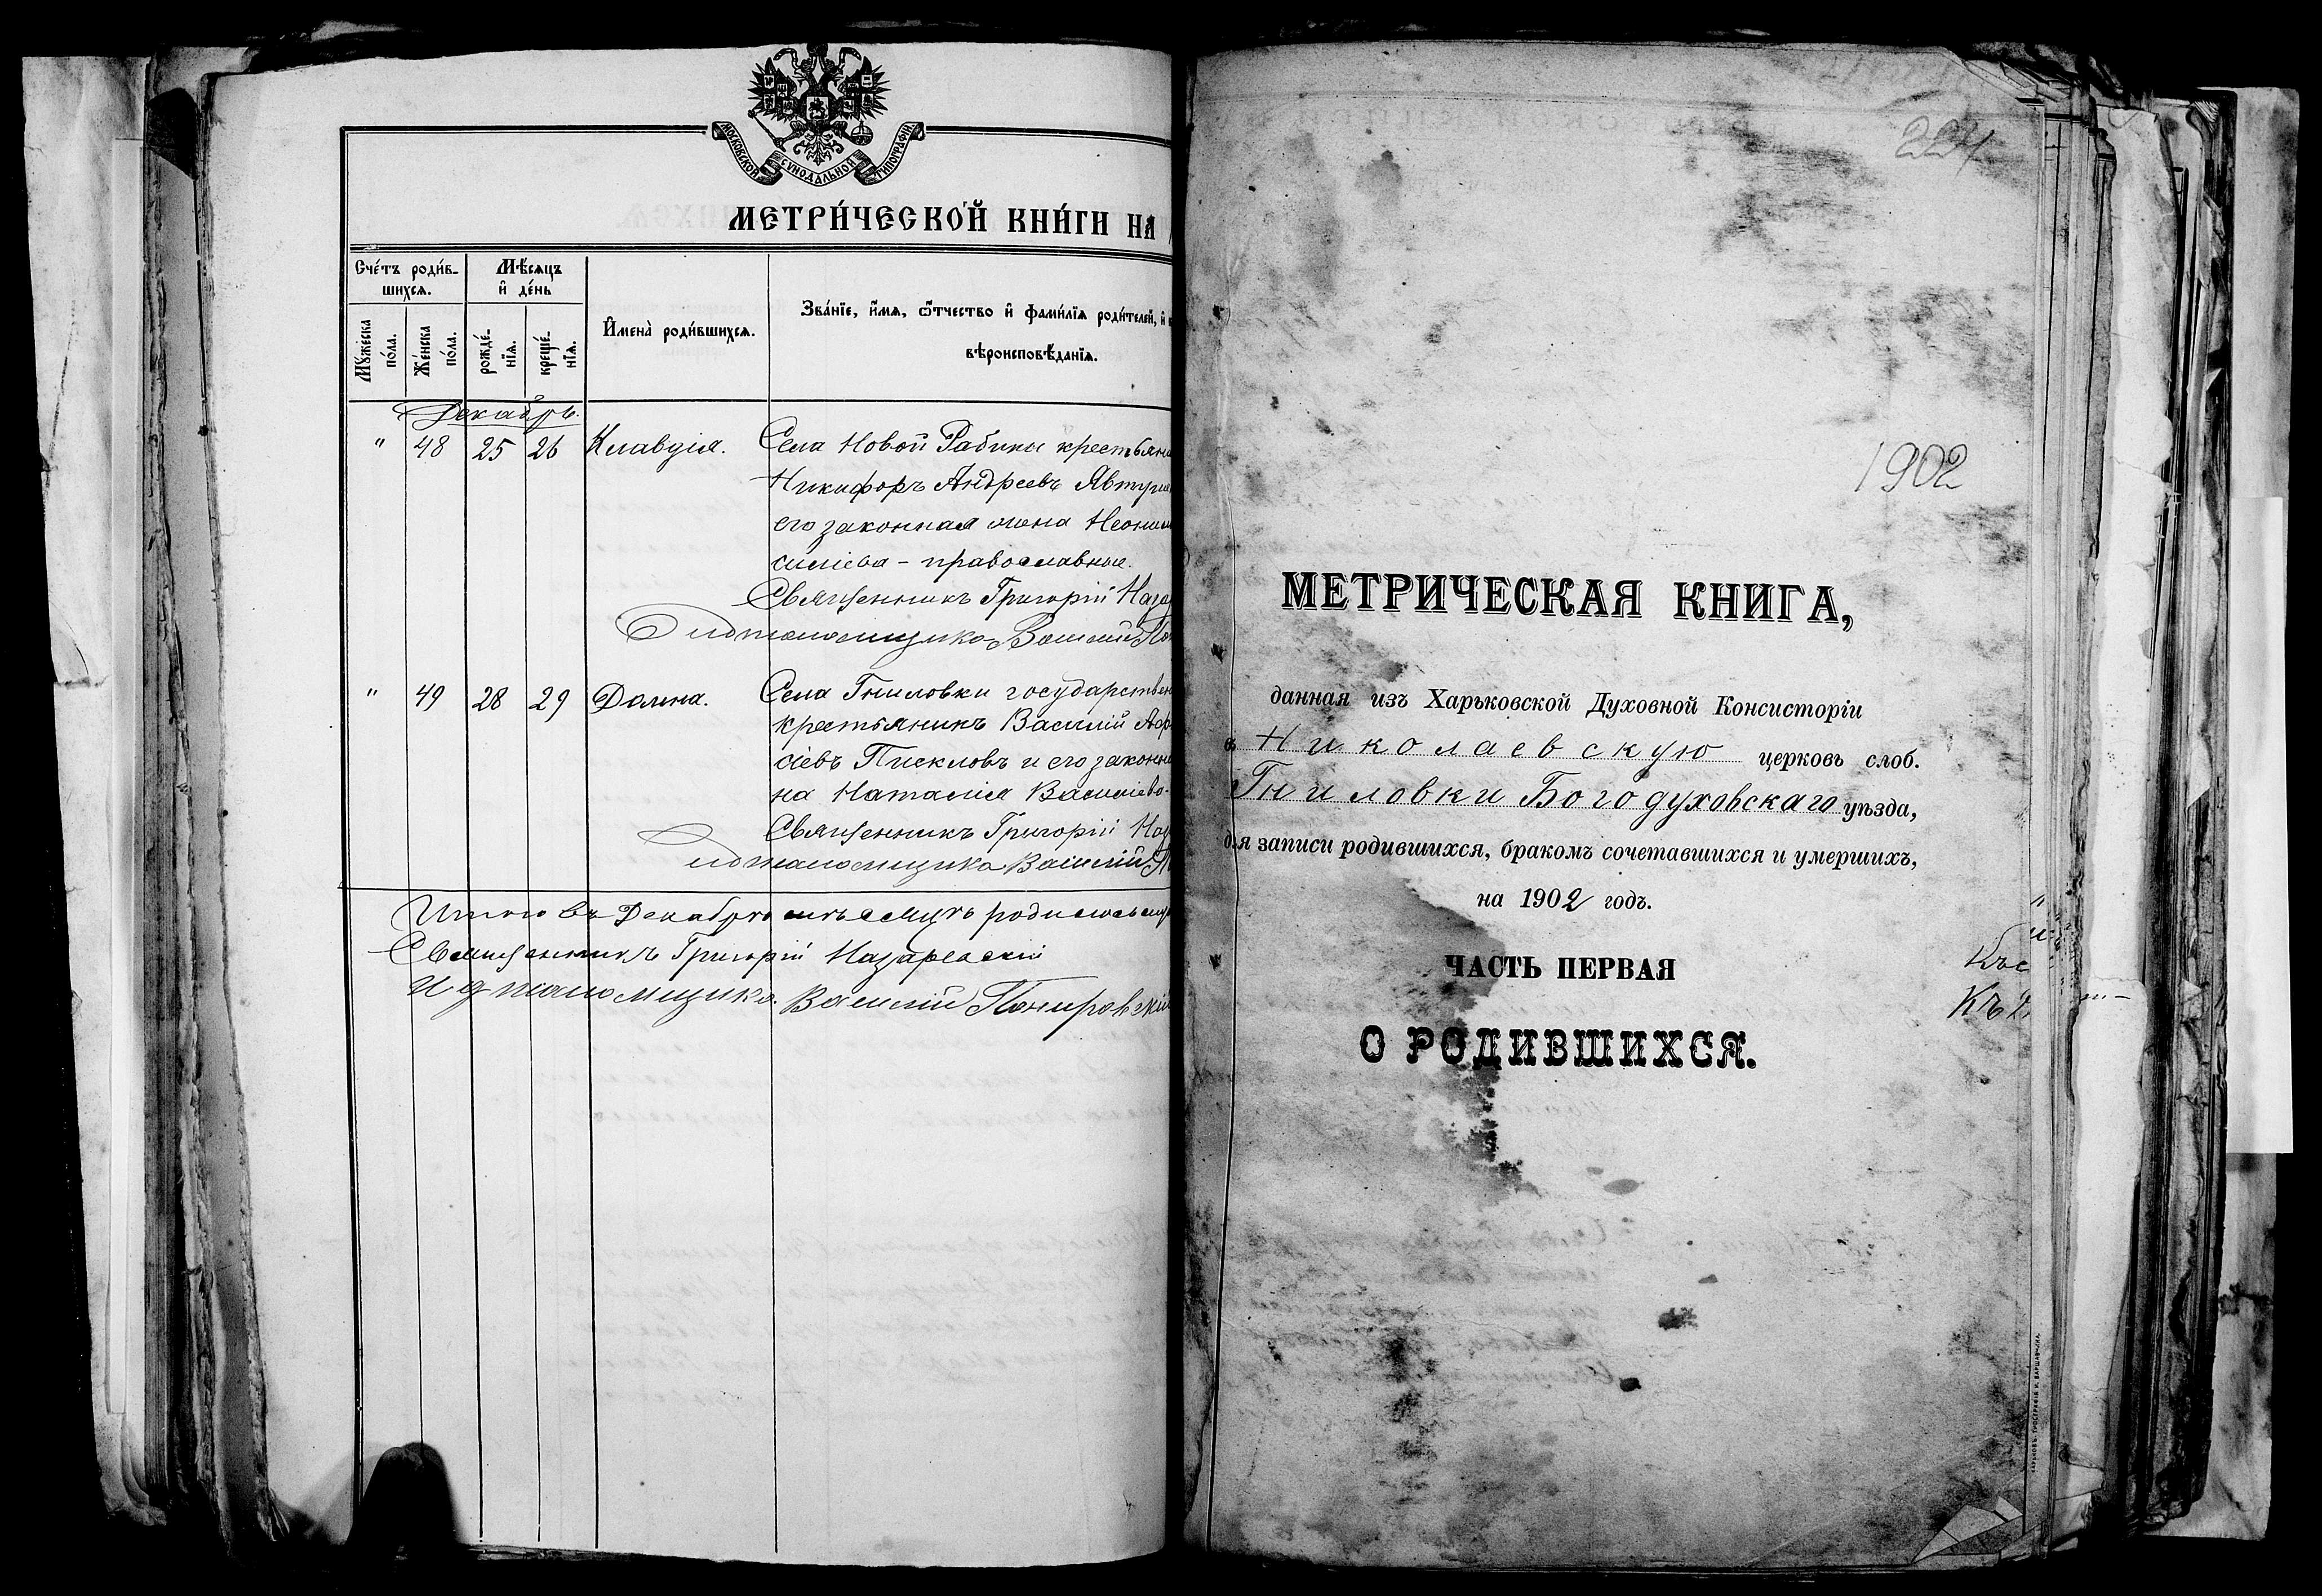 МОСКОВСКОЙ СУНОДАЛЬНОЙ ТИПОГРАФІИ
МЕТРИ́ЧЕСКОЙ КНИ́ГИ НА
Сче́тъ роди́в-
шихся.
Мѣ́сяцъ
и де́нь
Му́жеска
по́ла.
Же́нска
по́ла.
рожде́-
нїя.
креще́-
нїя.
Имена̀ роди́вшихся.
Зва́нїе, и́мя, ѻ҆́тчество и фами́лїя роди́телей, и
вѣроисповѣ́данїя.
Декабрь.
" 48 25 26 Клавдія. Села Новой Рабины крестьяни
Никифоръ Андреевъ
его законная жена
силіева - православные.
Священникъ Григорій
Василій
" 49 28 29 Домна. Села Гниловки государствен
крестьянинъ Василій
сіевъ Пискловъ и его законна
на Наталія Василіева.
Священникъ Григорій
Василій
Итого въ Декабрѣ мѣсяцѣ родилось
Священникъ Григорій Назаревскій
И д псаломщика Василій
224
1902
МЕТРИЧЕСКАЯ КНИГА,
данная изъ Харьковской Духовной Консисторіи
въ Николаевскую церковь слоб.
Гниловки Богодуховскаго уѣзда,
для записи родившихся, бракомъ сочетавшихся и умершихъ,
на 1902 годъ.
ЧАСТЬ ПЕРВАЯ
О РОДИВШИХСЯ.